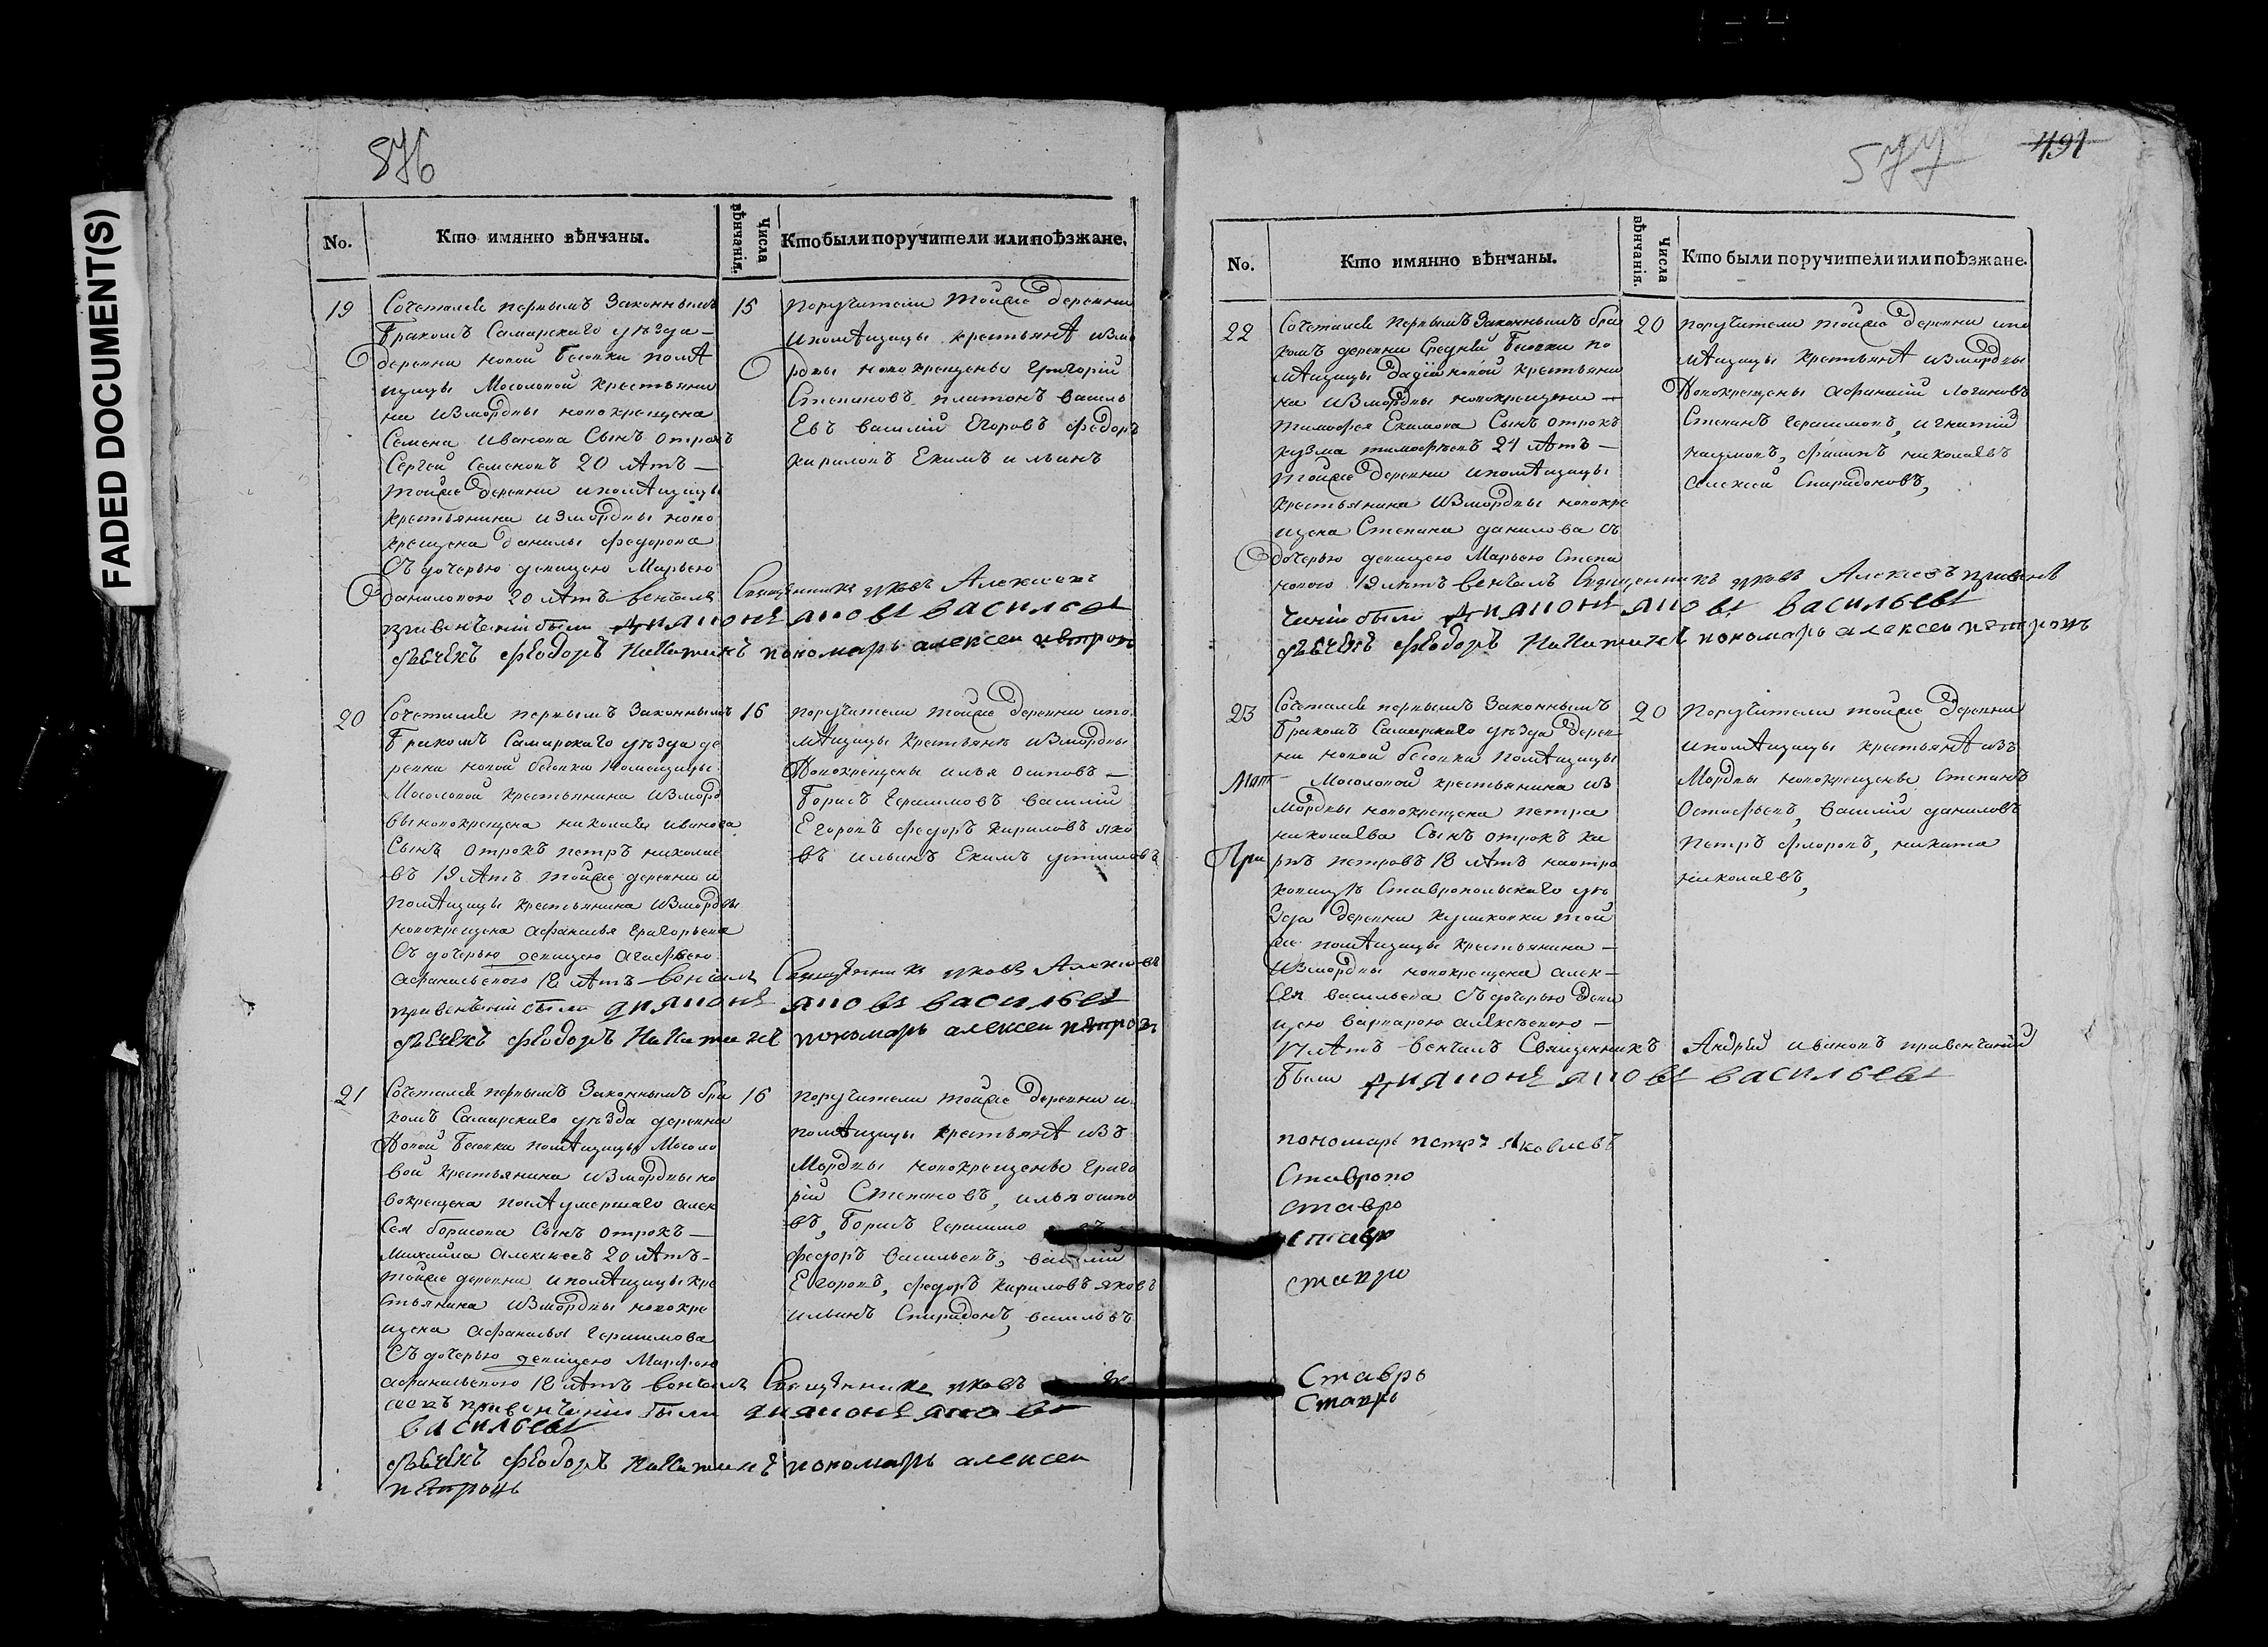 FADED DOCUMENT(S)
876
No.
Кто имянно вѣнчаны.
Числа вѣнчанія.
Кто были поручители или поѣзжане.
19
Сочетался первымъ Законнымъ
бракомъ Самарскаго уѣзда
деревни новой бесовки помѣ
щицы Мосоловой крестьяни
на измордвы новокрещена
Семена Иванова Сынъ отрокъ
Сергей Семеновъ 20 лѣтъ
тойже деревни ипомѣщицы
крестьянина измордвы ново
крещена данилы федорова
Съ дочерью девицею Марьею
даниловою 20 лѣтъ венчалъ Священникъ яковъ Алексиевъ
привенчении были диаконъ яковъ васильевъ
дьячекъ феодоръ Никитинъ пономарь алексеи петровъ
15
поручители тойже деревни
ипомѣщицы крестьянѣ измо
рдвы новокрещены Григорий
Степановъ платонъ василь
Евъ василий Егоровъ федоръ
кириловъ Екимъ ильинъ
20
Сочетался первымъ Законнымъ
бракомъ Самарскаго уѣзда де
ревни новой бесовки помещицы
Мосоловой крестьянина измор
двы новокрещена николая иванова
Сынъ отрокъ петръ николае
въ 19 лѣтъ тойже деревни и
помѣщицы крестьянина измордвы
новокрещена афанасья григорьева
Съ дочерью девицею Агафьею
афанасьевою 18 лѣтъ венчалъ Священникъ яковъ Алексиевъ
привенчении были диаконъ яковъ васильевъ
дьячекъ феодоръ Никитинъ пономарь алексеи петровъ
16
поручители тойже деревни ипо
мѣщицы крестьянѣ измордвы
Новокрещены илья осиповъ
Борисъ Герасимовъ василий
Егоровъ федоръ кириловъ яко
въ ильинъ Екимъ
21
Сочетался первымъ Законнымъ бра
комъ Самарскаго уѣзда деревни
Новой бесовки помѣщицы Мосоло
вой крестьянина измордвы но
вокрещена умершаго алек
Сея борисова Сынъ отрокъ
михаила алексеевъ 20 лѣтъ
тойже деревни ипомѣщицы кре
стьянина измордвы новокре
щена афанасья Герасимова
Съ дочерью девицею Марфою
афанасьевою 18 лѣтъ венчалъ Священникъ яковъ
привенчении были диаконъ яковъ
васильевъ
дьячекъ феодоръ Никитинъ пономарь алексеи
петровъ
16
поручители тойже деревни и
помѣщицы крестьянѣ изъ
Мордвы новокрещены Григо
рий Степановъ, илья осипо
въ, Борисъ Герасимо
федоръ васильевъ, василий
Егоровъ, федоръ кириловъ яковъ
ильинъ Спиридонъ, васильевъ
577
491
No.
Кто имянно вѣнчаны.
Числа вѣнчанія.
Кто были поручители или поѣзжане.
22
Сочетался первымъ Законнымъ бра
комъ деревни Средней бесовки по
мѣщицы крестьяни
на измордвы новокрещена
тимофея Екимова Сынъ отрокъ
кузма тимофѣевъ 21 лѣтъ
тойже деревни ипомѣщицы
крестьянина измордвы новокре
щена Степана данилова съ
дочерью девицею Марьею Степа
новою 19 лѣтъ венчалъ Священникъ яковъ Алексеевъ привен
чении были диаконъ яковъ васильевъ
дьячекъ феодоръ Никитинъ пономарь алексеи петровъ
20
поручители тойже деревни ипо
мѣщицы крестьянѣ измордвы
Новокрещены афанасий логиновъ
Степанъ герасимовъ, игнатий
наумовъ, филипъ николаевъ
алексей Спиридоновъ,
23
Сочетался первымъ Законнымъ
бракомъ Самарскаго уѣзда дерев
ни новой бесовки помѣщицы
Мосоловой крестьянина из
мордвы новокрещена петра
николаева Сынъ отрокъ ки
рилъ петровъ 18 лѣтъ наотро
ковицѣ Ставропольскаго уѣ
зда деревни той
же помѣщицы крестьянина
измордвы новокрещена алек
Сѣя васильева Съ дочерью деви
цею варварою алексѣевою
17 лѣтъ венчалъ Священникъ Андрей ивановъ привенчании
были диаконъ яковъ васильевъ
20
Поручители тойже деревни
ипомѣщицы крестьянѣ изъ
Мордвы новокрещены Степанъ
Остафьевъ, василий даниловъ
петръ флоровъ, никита
николаевъ,
пономарь петръ яковлевъ
Ставропо
ставро
ставро
ставро
Ставро
Ставро